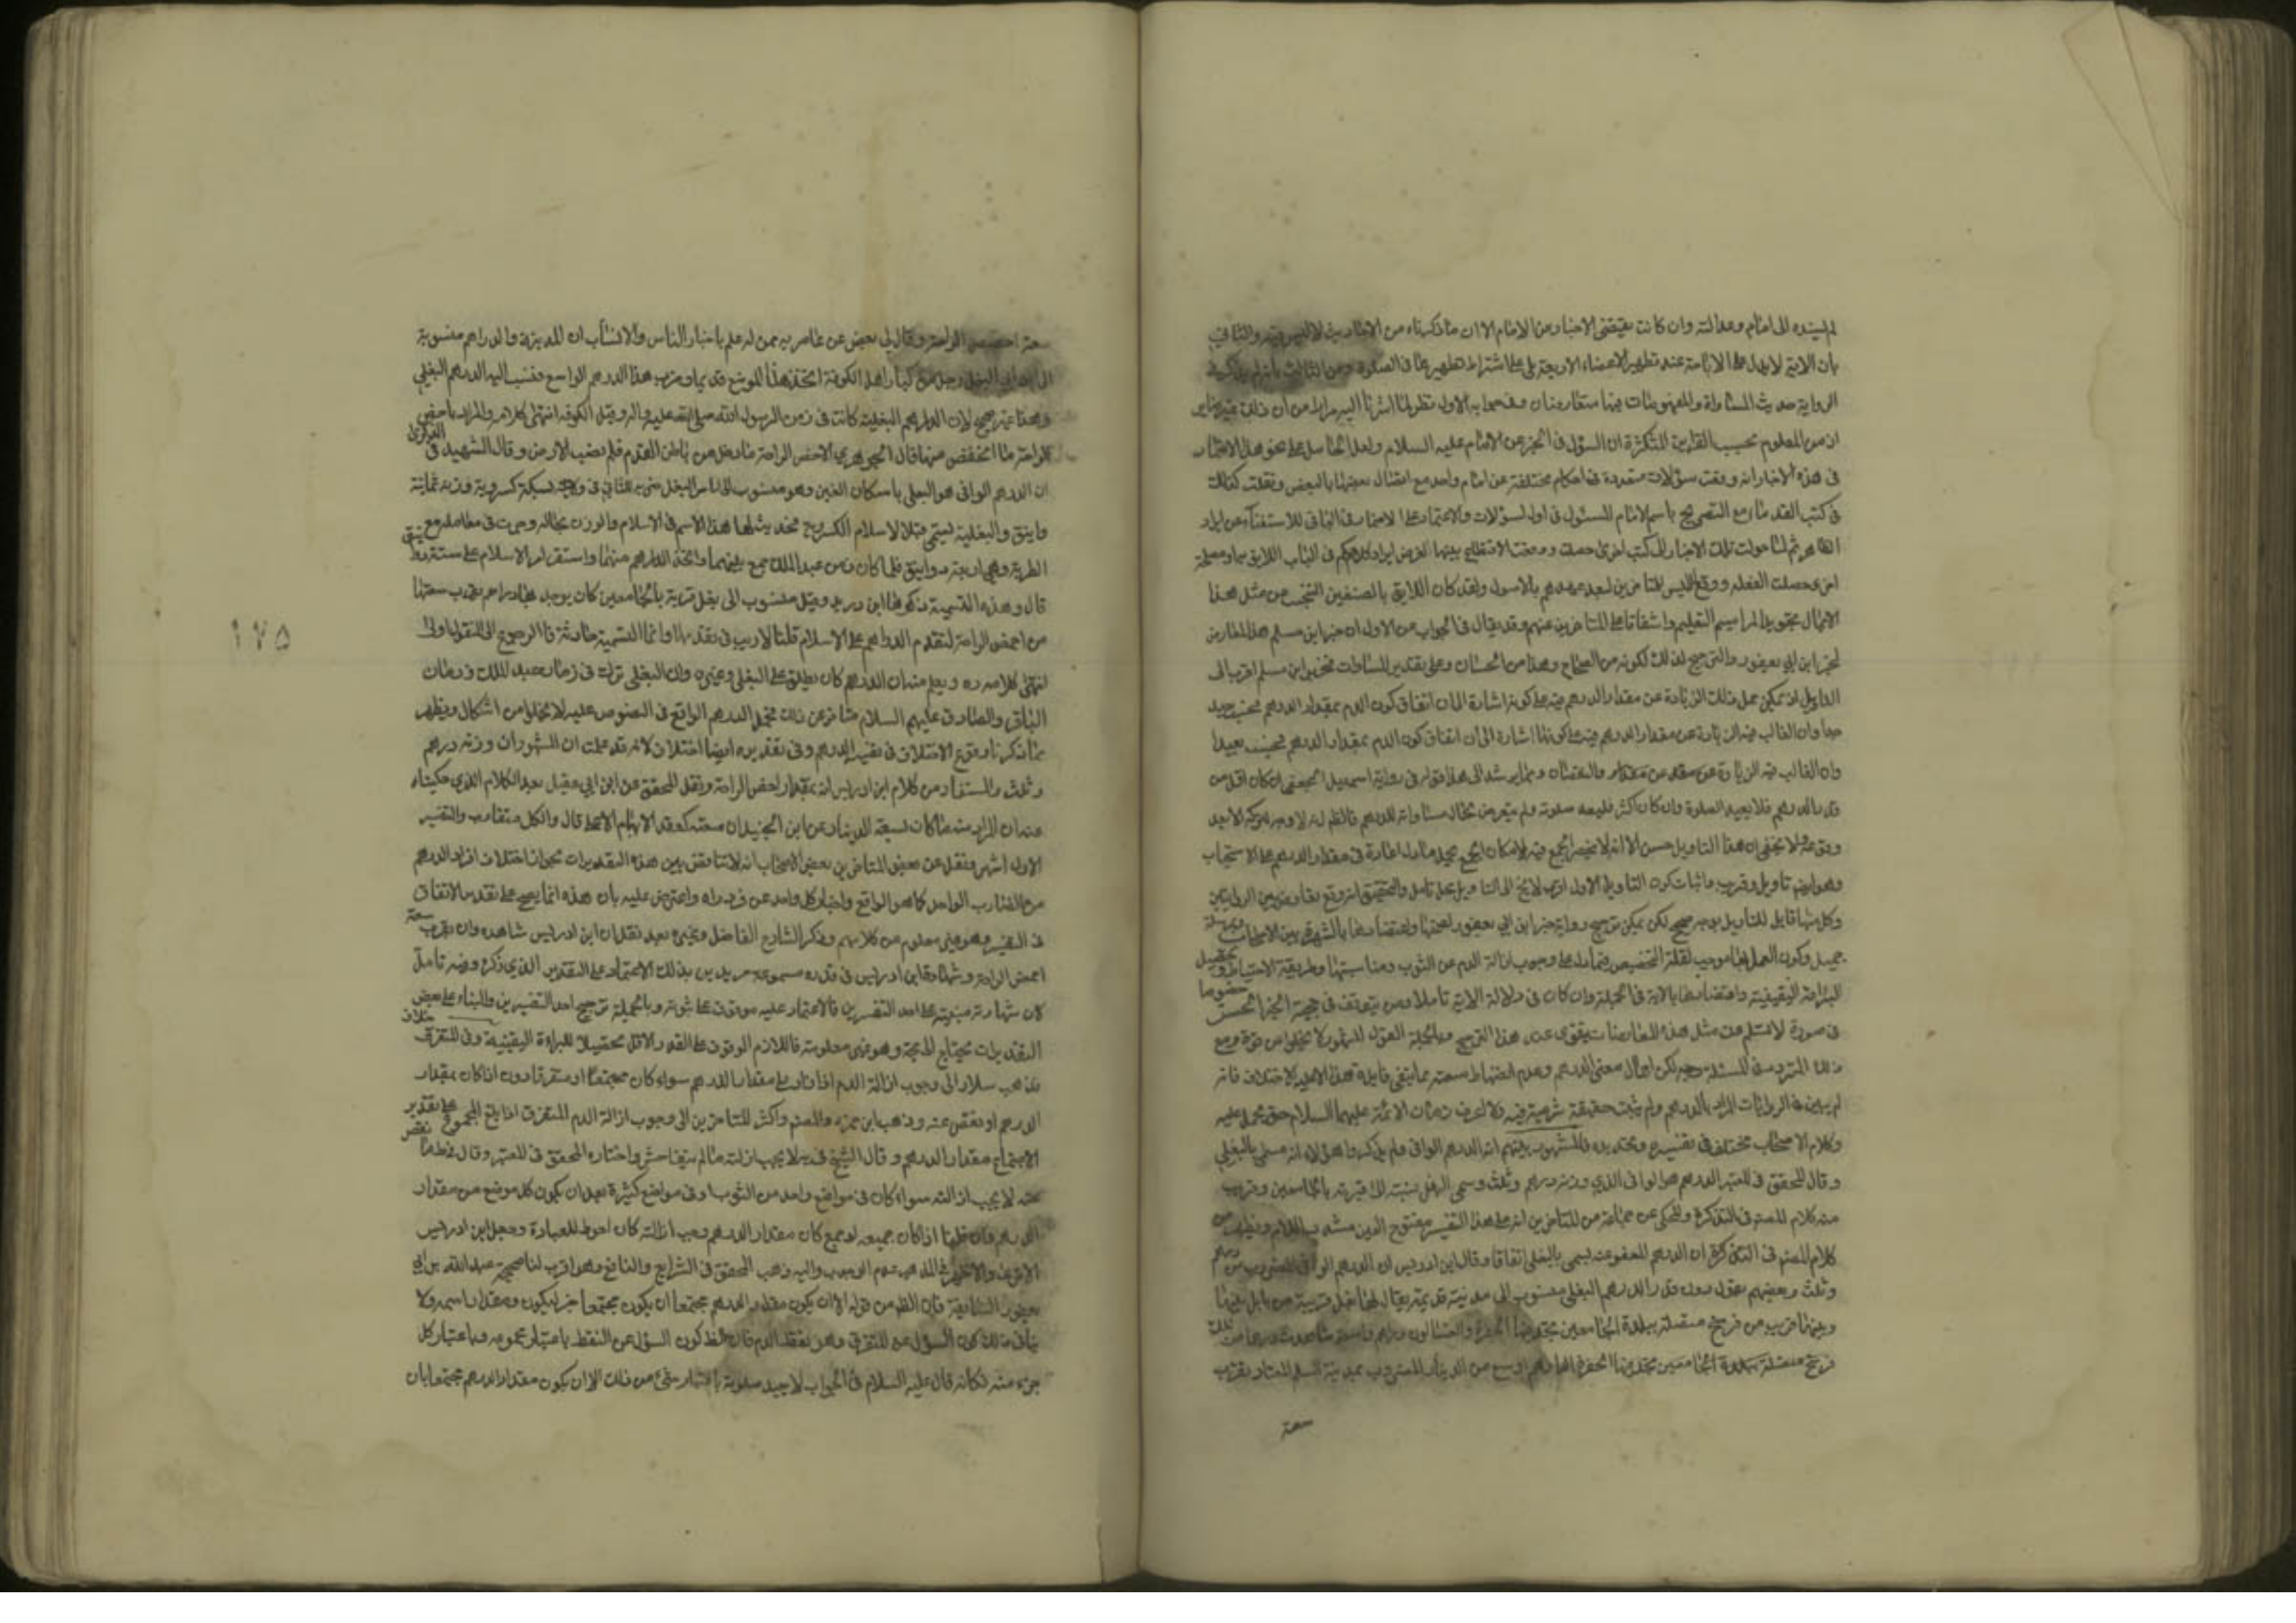 لم يسنده الى امام وعدالته وان كانت يقتضى الاخبار عن الامام الا ان ما ذكرناه من الاحاديث والثانى
بان الاية لا يدل على الاباحة عند تطهير الاعضاء الاربعة بل على اشتراط تطهيرها فى الصلوة وعن الثالث
الرواية حديث المساواة والمفهومات فيها متعارضان
اذ من المعلوم بحسب القراين المتكثرة ان السؤل فى الخبر عن الامام عليه السلام
فى هذه الاخبار انه وقعت سؤلات متعددة فى احكام مختلفة عن امام واحد مع اتصال بعضها بالبعض ونقلت كذلك
فى كتب القدماء مع التصريح باسم الامام المسئول فى اول السؤلات والاعتماد على الاضمار فى الباقى للاستغناء عن ايراد
الظاهر ثم لما حولت تلك الاخبار الى كتب اخرى حصلت ووقعت الانقطاع بينها
اخرى حصلت الغفلة ووقع اللبس للمتاخرين لبعد عهدهم بالاصول ولقد كان اللايق بالمصنفين التجنب عن مثل هذا
وقد يقال فى الجواب عن الاول ان خبر ابن مسلم هذا معارض
لخبر ابن ابى يعفور والترجيح لذلك لكونه من الصحاح وهذا من الحسان وعلى تقدير المساوات فخبر ابن مسلم اقرب الى
التاويل اذ يمكن حمل ذلك الزيادة عن مقدار الدرهم فيه على كونه اشارة الى ان اتفاق كون الدم بمقدار الدرهم بحيث
جدا وان الغالب فيه الزيادة عن مقدار الدرهم فيه على كونها اشارة الى ان اتفاق كون الدم بمقدار الدرهم بحيث بعيدا
وان الغالب فيه الزيادة عن مقدار والنقصان ومما يرشد الى هذا قوله فى رواية اسمعيل الجعفى ان كان اقل من
قدر الدرهم فلا يعيد الصلوة وان كان اكثر فليعد صلوته ولم يتعرض بحال مساواته للدرهم
ولا يخفى ان هذا التاويل حسن الا انه لا ينحصر الجمع فيه لامكان الجمع بحمل ما دل على الاعادة فى مقدار الدرهم على الاستحباب
وهو ايضا تاويل قريب واثبات كون التاويل الاول اقرب لا يخ الى التاويل محل تامل والتحقيق انه وقع تعارض بين الروايتين
وكل منهما قابل للتاويل بوجه صحيح لكن يمكن ترجيح رواية خبر ابن ابى يعفور لصحتها واعتضادها بالشهرة بين الاصحاب
جميل وكون العمل بها موجب لقلة التخصيص فيما دل على وجوب ازالة الدم عن الثوب ومناسبتها وطريقة الاحتياط وتحصيل
البراءة اليقينية واعتضادها بالاية فى الجملة وان كان فى دلالة الاية تاملا ومن يتوقف فى حجية الخبر الحسن خصوصا
فى صورة لا تسلم عن مثل هذه المعارضات يقوى عنده هذا الترجيح وبالجملة القول المشهور لا يخلو من قوة ومع
ذلك التردد فى المسئلة لكن اجمال معنى الدرهم وعدم انضباط سعته مما ينفى فايدة هذا الاختلاف فانه
لم يبين فى الروايات المراد بالدرهم ولم يثبت حقيقة شرعية فيه ولا عرف زمان الائمة عليهم السلام حتى يحمل عليه
وكلام الاصحاب مختلف فى تفسيره وتحديده فالمشهور بينهم انه الدرهم الوافى ولم يذكروا هؤلاء انه مسمى بالبغلى
وقال المحقق فى المعتبر الدرهم هو الوافى الذى وزنه درهم وثلث وسمى البغلى نسبة الى قرية بالجامعين وقريب
منه كلام المصنف فى التذكرة والمحكى عن جماعة من المتاخرين انه على هذا التفسير مفتوح الغين مشدد اللام ويظهر من
كلام المصنف فى التذكرة ان الدرهم المعفو عنه يسمى بالبغلى اتفاقا وقال ابن ادريس ان الدرهم الوافى المضروب من درهم
وثلث وبعضهم يقول دون قدر الدرهم البغلى منسوب الى مدينة قديمة يقال لها بغل قريبة من بابل بينها
وبينها قريب من فرسخ متصلة ببلدة الجامعين يجد فيها الحفرة والغسالون دراهم واسعة شاهدت درهما من تلك
فرسخ متصلة ببلدة الجامعين يجد فيها الحفرة الدراهم اوسع من الدينار المضروب بمدينة السلم المعتاد بقرب
سعة
سعة اخمص الراحة وقال لى بعض من عاصرته ممن له علم باخبار الناس والانساب ان المدينة والدراهم منسوبة
الى ابن ابى البغل رجل من كبار اهل الكوفة اتخذ هذا الموضع قديما وضرب هذا الدرهم الواسع فنسب اليه الدرهم البغلى
وهذا غير صحيح لان الدراهم البغلية كانت فى زمن الرسول الله صلى الله عليه واله وقبل الكوفة انتهى كلامه والمراد باخمص
الراحة ما انخفض منها قال الجوهرى الاخمص الراحة ما دخل من باطن القدم فلم يصب الارض وقال الشهيد فى الذكرى
ان الدرهم الوافى هو البغلى باسكان الغين وهو منسوب الى راس البغل ضربه الثانى فى ولايته بسكة كسروية وزنه ثمانية
دوانيق والبغلية تسمى قبل الاسلام الكسروية فحدث لها هذا الاسم فى الاسلام والوزن بحاله وجرت فى معاملتهم مع
الطبرية وهى اربعة دوانيق فلما كان زمن عبد الملك جمع بينهما واتخذ الدراهم منهما واستقر امر الاسلام على ستة دوانيق
قال وهذه التسمية ذكرها ابن دريد وقيل منسوب الى بغل قرية بالجامعين كان يوجد بها دراهم يقرب سعتها
من اخمص الراحة لتقدم الدراهم على الاسلام قلنا لا ريب فى تقدمها وانما التسمية حادثة فالرجوع الى المنقول اولى
انتهى كلامه ره ويعلم منه ان الدرهم كان يطلق على البغلى وغيره وان البغلى ترك فى زمان عبد الملك وزمان
الباقر والصادق عليهم السلام متاخر عن ذلك فحمل الدرهم الواقع فى النصوص عليه لا يخلو من اشكال ويظهر
مما ذكرنا وقوع الاختلاف فى تفسير الدرهم وفى تقديره ايضا اختلاف لانه قد علمت ان المشهور ان وزنه درهم
وثلث والمستفاد من كلام ابن ادريس انه بمقدار اخمص الراحة ونقل المحقق عن ابن ابى عقيل بعد الكلام الذى حكيناه
عنه ان المراد منه ما كان بسعة الدينار وعن ابن الجنيد ان سعته كعقد الابهام الاعلى قال والكل متقارب والتفسير
الاول اشهر ونقل عن بعض المتاخرين بعض الاصحاب انه لا تناقض بين هذه التقديرات لجواز اختلاف افراد الدرهم
من الضارب الواحد كما هو الواقع واخبار كل واحد عن فرد راه واعترض عليه بان هذه انما يصح على تقدير الاتفاق
فى التفسير وهو غير معلوم من كلامهم وذكر الشارح الفاضل وغيره بعد نقله ان ابن ادريس شاهده وان يقرب سعة
اخمص الراحة وشهادة ابن ادريس فى قدره مسموعة مريدين بذلك الاعتماد على التقدير الذى ذكره وفيه تامل
لان شهادته مبنية على احد التفسيرين فالاعتماد عليه موقوف على ثبوته وبالجملة ترجيح احد التفسيرين والبناء على بعض
التقديرات يحتاج الى حجة وهو غير معلومة فاللازم الوقوف على القدر الاقل تحصيلا للبراءة اليقينية وفى المتفرق خلاف
فذهب سلار الى وجوب ازالة الدم اذا زاد على مقدار الدرهم سواء كان مجتمعا او متفرقا دون اذا كان بمقدار
الدرهم او نقص عنه وذهب ابن حمزة والمصنف واكثر المتاخرين الى وجوب ازالة الدم المتفرق اذا بلغ المجموع على تقدير
الاجتماع مقدار الدرهم وقال الشيخ فى يه لا يجب ازالته ما لم يتفاحش واختاره المحقق فى المعتبر وقال فى ط ما نقص
عنه لا يجب ازالته سواء كان فى مواضع واحد من الثوب او فى مواضع كثيرة بعد ان يكون كل موضع من مقدار
الدرهم وان قلنا اذا كان جميعه لو جمع كان مقدار الدرهم وجب ازالته كان احوط للعبادة وجعل ابن ادريس
الاحوط والاظهر فى المذهب عدم الوجوب واليه ذهب المحقق فى الشرايع والنافع وهو اقرب لنا صحيحة عبد الله بن ابى
يعفور السابقة فان الظ من قوله الا ان يكون مقدار الدرهم مجتمعا ان يكون مجتمعا خبر ليكون ومقدار اسمه ولا
ينافى ذلك كون السؤل عن المتفرق وهو نقط الدم فان الظ كون السؤل عن النقط باعتبار مجموعه وباعتبار كل
جزء منه فكانه قال عليه السلام فى الجواب لا يعيد صلوته باعتبار شئ من ذلك الا ان يكون مقدار الدرهم مجتمعا بان
١٧٥